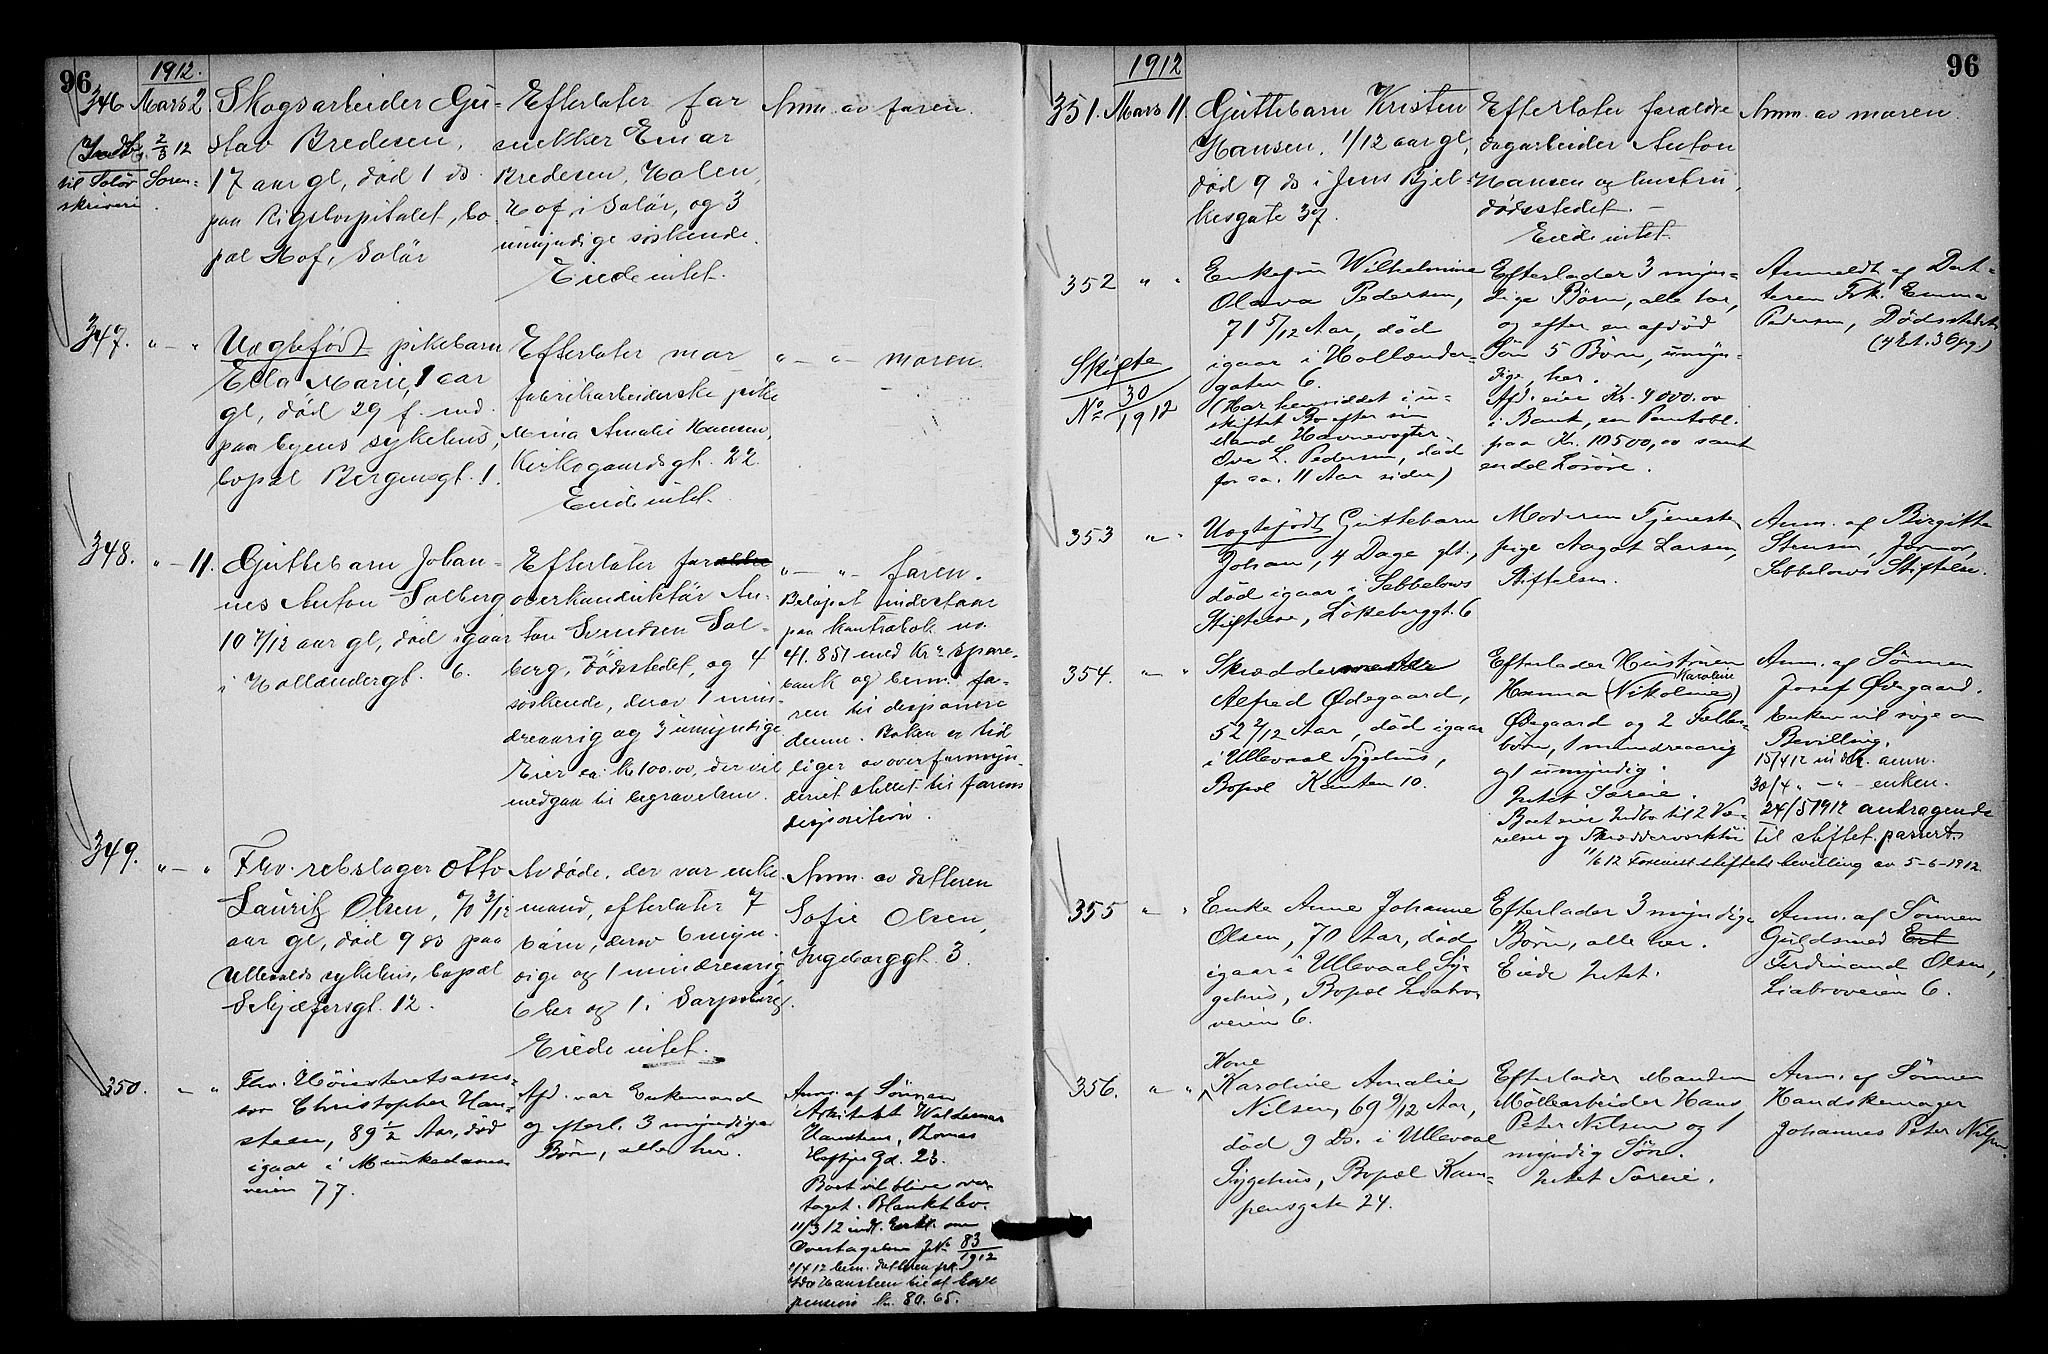 96
1912.
346 Mars 2
Skogsarbeider Gu-
stav Bredesen,
17 aar gl, død 1 ds.
paa Rigshospitalet, bo-
pæl Hof, Solør
Indb. 2/3 12
til Solør Soren-
skriveri.
Efterlater far
snekker Einar
Bredesen, Holen,
Hof i Solør, og 3
umyndige søskende.
Eiede intet.
Anm. av faren.
347. " — "
Uegtefødt pikebarn
Ella Marie, 1 aar
gl, død 29 f. md.
paa byens sykehus,
bopæl Bergensgt. 1.
Efterlater mor
fabrikarbeiderske pike
Mina Amalie Hansen,
Kirkegaardsgt. 22.
Eiede intet.
" — " — moren.
348. " — 11.
Guttebarn Johan-
nes Anton Solberg
10 7/12 aar gl, død igaar
i Hollændergt. 6.
Efterlater forældre
overkonduktør An-
ton Svendsen Sol-
berg, dødsstedet, og 4
søskende, derav 1 min-
dreaarig og 3 umyndige
Eier ca. kr 100.00, der vil
medgaa til begravelsen.
" — " — faren.
Beløpet indestaar
paa kontrabok no.
41.851 med Kra spare-
bank og bem. fa-
ren til disponere
denne. Boken er tid-
liger av overformyn-
deriet stillet til farens
disposition.
349. " — "
Fhv. rebslager Otto
Lauritz Olsen, 70 3/12
aar gl, død 9 ds paa
Ullevolds sykehus, bopæl
Schjæfersgt. 12.
Avdøde, der var enke-
mand, efterlater 7
børn, derav 6 myn-
dige og 1 mindreaarig,
6 her og 1 i Sarpsborg.
Eiede intet.
Anm. av datteren
Sofie Olsen,
Ingeborggt. 3.
350. " — "
Fhv. Høiesteretsasses-
sor Christopher Han-
steen, 89 1/2 Aar, død
igaar i Munkedams-
veien 77.
Afd. var Enkemand
og efterl. 3 myndige
Børn, alle her.
Anm. af Sønnen
Arkitekt Waldemar
Hansteen, Thomas
Heftyes Gd. 23.
Boet vil blive over-
taget. Blanket lev.
11/3 12 indl. Erkl. om
Overtagelse J.No 83/1912
bem. datteren frk.
Hansteen til at hæve
pension kr. 80.65.
96
1912
351. Mars 11.
Guttebarn Kristen
Hansen, 1/12 aar gl,
død 9 ds i Jens Bjel-
kesgate 37.
Efterlater forældre
dagarbeider Anton
Hansen og hustru,
dødsstedet. —
Eiede intet.
Anm. av moren.
352 " "
Enkefru Wilhelmine
Olava Pedersen,
71 5/12 Aar, død
igaar i Hollænder-
gaten 6.
(Har hensiddet i u-
skiftet Bo efter sin
Mand Havnevogter
Ove L. Pedersen, død
for ca. 11 Aar siden)
Skifte
No 30/1912
Efterlader 3 myn-
dige Børn, alle her,
og efter en afdød
Søn 5 Børn, umyn-
dige, her.
Afd. eier Kr. 4000.00
i Bank, en Pantobl.
paa Kr. 10500,00 samt
en del Løsøre.
Anmeldt af Dat-
teren Frk. Emma
Pedersen, Dødsstedet
(4 Et. 3 Opg.)
353 " — "
Uegtefødt Guttebarn
Johan, 4 Dage glt.,
død igaar i Sebbelows
Stiftelse, Løkkeberggt. 6
Moderen Tjeneste-
pige Aagot Larsen,
Stiftelsen.
Anm. af Birgitte
Stensen, Jormor,
Sebbelows Stiftelse.
354. " — "
Skræddermester
Alfred Ødegaard,
52 2/12 Aar, død igaar
i Ullevaal Sygehus,
Bopæl Kanten 10.
Efterlader Hustruen
Karoline
Hanna (Nikoline)
Ødegaard og 2 Fælles-
børn, 1 mindreaarig
og 1 umyndig.
Intet Særeie.
Boet eier Indbo til 2 Væ-
relser og Skrædderverktøi
Anm. af Sønnen
Josef Ødegaard.
Enken vil søge om
Bevilling.
15/4 12 indk. anm.
30/4 " — " — enken.
24/5 1912 andragende
til stiftet passert.
11/6 12 Forevist stiftets bevilling av 5-6-1912.
355 " — "
Enke Anne Johanne
Olsen, 70 Aar, død
igaar i Ullevaal Sy-
gehus, Bopæl Liabro-
veien 6.
Efterlader 3 myndige
Børn, alle her.
Eiede Intet.
Anm. af Sønnen
Guldsmed
Ferdinand Olsen,
Liabroveien 6.
356. " — "
Kone
Karoline Amalie
Nilsen, 69 9/12 Aar,
død 9 Ds. i Ullevaal
Sygehus, Bopæl Kam-
pensgate 24.
Efterlader Manden
Møllearbeider Hans
Peter Nilsen og 1
myndig Søn.
Intet Særeie.
Anm. af Sønnen
Handskemager
Johannes Peter Nilsen.